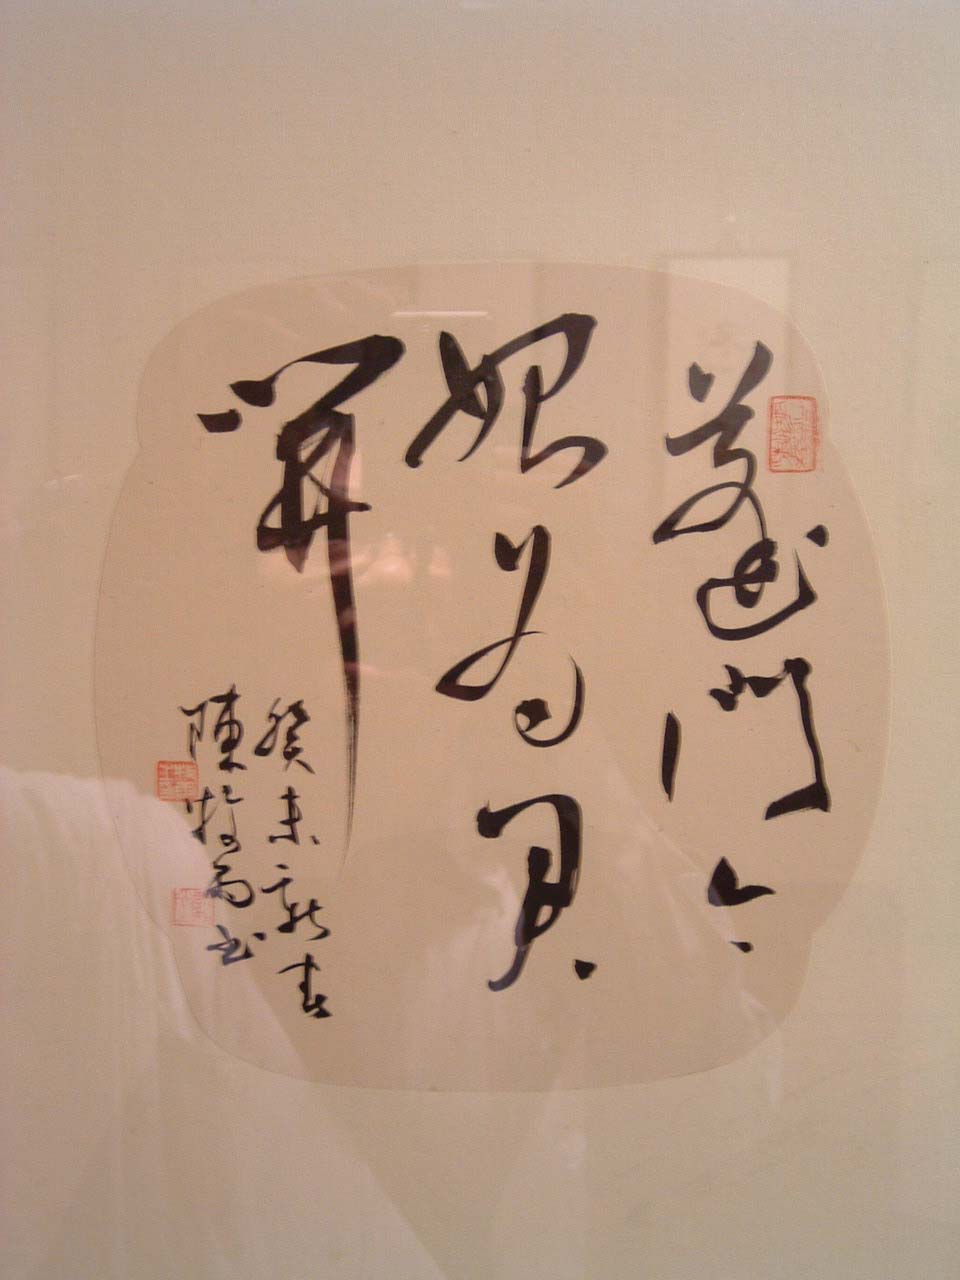 蓬門今
始為君
開
癸未新春
陳牧雨書